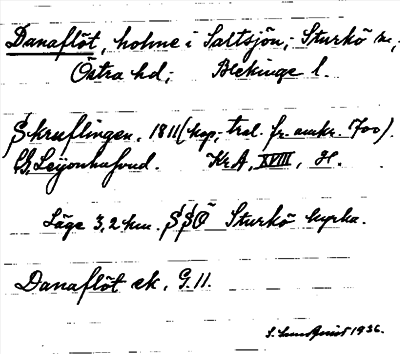 Danaflöt, holme i Saltsjön, Sturkö sn,
Östra hd, Blekinge l.
Skruflingen. 1811 (kop. trol. fr. omkr. 700).
G. Leijonhufvud. KrA, XVIII, H.
Läge 3,2 km. SSÖ Sturkö kyrka.
Danaflöt ek. G. 11.
1936.